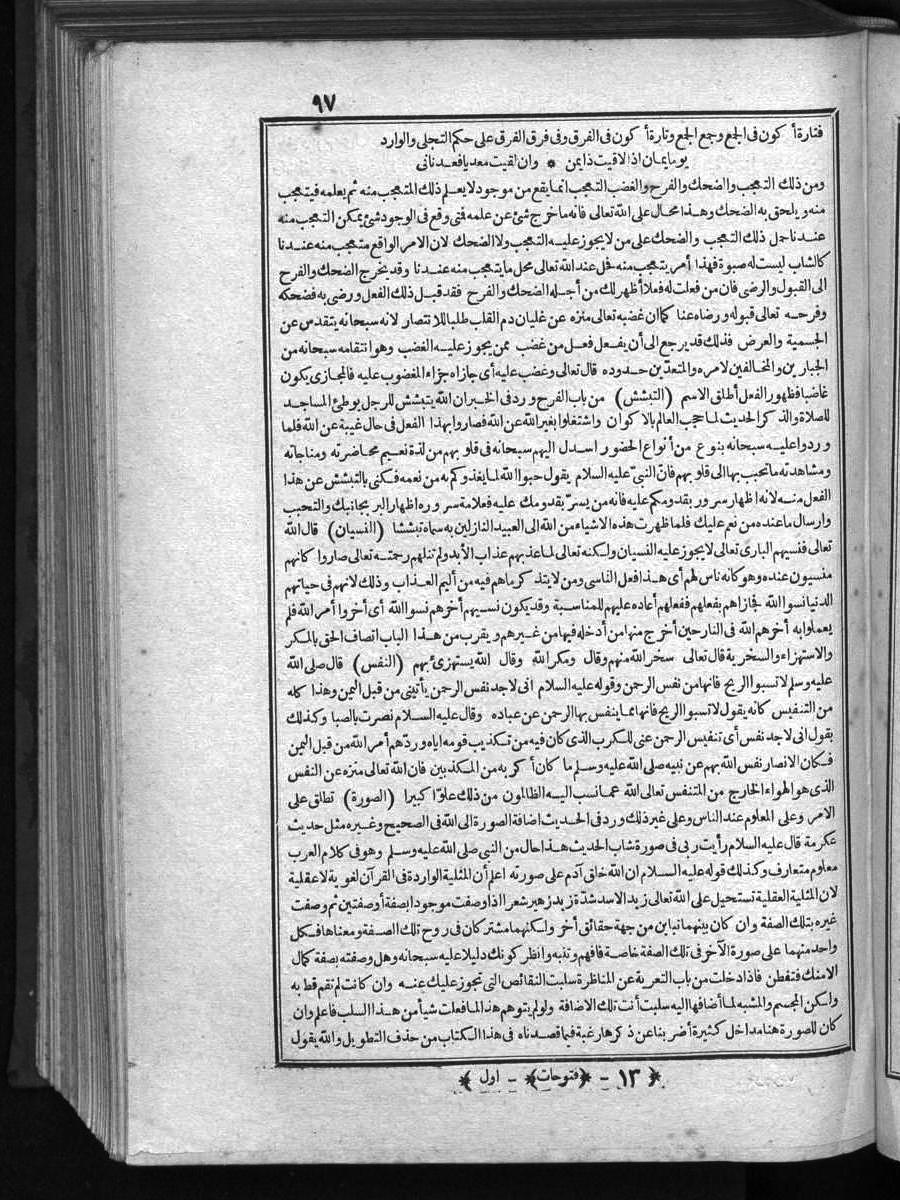 ٩٧
فتارة أكون فى الجمع وجمع الجمع وتارة أكون فى الفرق وفى فرق الفرق على حكم التجلى والوارد
يوما يمان اذا لاقيت ذا يمن * وان لقيت معديا فعدنانى
ومن ذلك التعجب والضحك والفرح والغضب التعجب انما يقع من موجود لا يعلم ذلك المتعجب منه ثم يعلمه فيتعجب
منه ويلحق به الضحك وهذا محال على الله تعالى فانه ما خرج شئ عن علمه فتى وقع فى الوجود شئ يمكن التعجب منه
عندنا حمل ذلك التعجب والضحك على من لا يجوز عليه التعجب ولا الضحك لان الامر الواقع متعجب منه عندنا
كالشاب ليست له صبوة فهذا أمر يتعجب منه فحل عند الله تعالى محل ما يتعجب منه عندنا وقد يخرج الضحك والفرح
الى القبول والرضى فان من فعلت له فعلا أظهر لك من أجله الضحك والفرح فقد قبل ذلك الفعل ورضى به فضحكه
وفرحه تعالى قبوله ورضاه عنا كما ان غضبه تعالى منزه عن غليان دم القلب طلبا للانتصار لانه سبحانه يتقدس عن
الجسمية والعرض فذلك قد يرجع الى أن يفعل فعل من غضب ممن يجوز عليه الغضب وهو انتقامه سبحانه من
الجبارين والمخالفين لامره والمتعدّين حدوده قال تعالى وغضب عليه أى جازاه جزاء المغضوب عليه فالمجازى يكون
غاضبا فظهور الفعل أطلق الاسم (التبشش) من باب الفرح ورد فى الخبر ان الله يتبشش للرجل يوطئ المساجد
للصلاة والذكر الحديث لما حجب العالم بالاكوان واشتغلوا بغير الله عن الله فصاروا بهذا الفعل فى حال غيبة عن الله فلما
وردوا عليه سبحانه بنوع من أنواع الحضور اسدل اليهم سبحانه فى قلوبهم من لذة نعيم محاضرته ومناجاته
ومشاهدته ما تحبب بها الى قلوبهم فانّ النبىّ عليه السلام يقول حبوا الله لما يغذوكم به من نعمه فكنى بالتبشش عن هذا
الفعل منه لانه اظهار سرور بقدومكم عليه فانه من يسرّ بقدومك عليه فعلامة سروره اظهار البر بجانبك والتحبب
وارسال ما عنده من نعم عليك فلما ظهرت هذه الاشياء من الله الى العبيد النازلين به سماه تبششا (النسيان) قال الله
تعالى فنسيهم البارى تعالى لا يجوز عليه النسيان ولكنه تعالى لما عذبهم عذاب الأبد ولم تنلهم رحمته تعالى صاروا كانهم
منسيون عنده وهو كانه ناس لهم أى هذا فعل الناسى ومن لا يتذكر ما هم فيه من أليم العذاب وذلك لانهم فى حياتهم
الدنيا نسوا الله فجازاهم بفعلهم ففعلهم أعاده عليهم للمناسبة وقد يكون نسيهم أخرهم نسوا الله أى أخروا أمر الله فلم
يعملوا به أخرهم الله فى النار حين أخرج منها من أدخله فيها من غيرهم ويقرب من هذا الباب اتصاف الحق بالمكر
والاستهزاء والسخرية قال تعالى سخر الله منهم وقال ومكر الله وقال الله يستهزئ بهم (النفس) قال صلى الله
عليه وسلم لا تسبوا الريح فانها من نفس الرحمن وقوله عليه السلام انى لاجد نفس الرحمن يأتينى من قبل اليمن وهذا كله
من التنفيس كانه يقول لا تسبوا الريح فانها مما ينفس بها الرحمن عن عباده وقال عليه السلام نصرت بالصبا وكذلك
يقول انى لاجد نفس أى تنفيس الرحمن عنى للكرب الذى كان فيه من تكذيب قومه اياه وردّهم أمر الله من قبل اليمن
فكان الانصار نفس الله بهم عن نبيه صلى الله عليه وسلم ما كان أكربه من المكذبين فان الله تعالى منزه عن النفس
الذى هو الهواء الخارج من المتنفس تعالى الله عما نسب اليه الظالمون من ذلك علوّا كبيرا (الصورة) تطلق على
الامر وعلى المعلوم عند الناس وعلى غير ذلك ورد فى الحديث اضافة الصورة الى الله فى الصحيح وغيره مثل حديث
عكرمة قال عليه السلام رأيت ربى فى صورة شاب الحديث هذا حال من النبى صلى الله عليه وسلم وهو فى كلام العرب
معلوم متعارف وكذلك قوله عليه السلام ان الله خلق آدم على صورته اعلم أن المثلية الواردة فى القرآن لغوية لا عقلية
لان المثلية العقلية تستحيل على الله تعالى زيد الاسد شدّة زيد زهير شعرا اذا وصفت موجودا بصفة أو صفتين ثم وصفت
غيره بتلك الصفة وان كان بينهما تباين من جهة حقائق أخر ولكنهما مشتركان فى روح تلك الصفة ومعناها فكل
واحد منهما على صورة الآخر فى تلك الصفة خاصة فافهم وتنبه وانظر كونك دليلا عليه سبحانه وهل وصفته بصفة كمال
الا منك فتفطن فاذا دخلت من باب التعرية عن المناظرة سلبت النقائص التى تجوز عليك عنه وان كانت لم تقم قط به
ولكن المجسم والمشبه لما أضافها اليه سلبت أنت تلك الاضافة ولو لم يتوهم هذا لما فعلت شيأ من هذا السلب فاعلم وان
كان للصورة هنا مداخل كثيرة أضربنا عن ذكرها رغبة فيما قصدناه فى هذا الكتاب من حذف التطويل والله يقول
﴿ ١٣ - ﴿فتوحات﴾ - اول ﴾